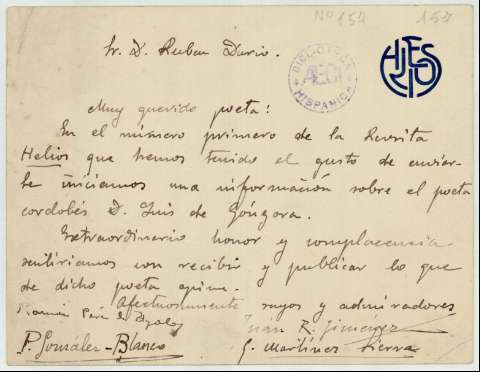 Nº 157 157
Sr. D. Ruben Dario.
BIBLIOTECA
AECI
HISPANICA
HELIOS
Muy querido poeta:
En el número primero de la Revista
Helios que hemos tenido el gusto de enviar-
le iniciamos una información sobre el poeta
cordobés D. Luis de Góngora.
Extraordinario honor y complacencia
sentiriamos con recibir y publicar lo que
de dicho poeta opina.
Afectuosamente suyos y admiradores
Ramón Pérez de Ayala
Juan R. Jiménez
P. González-Blanco
G. Martínez Sierra